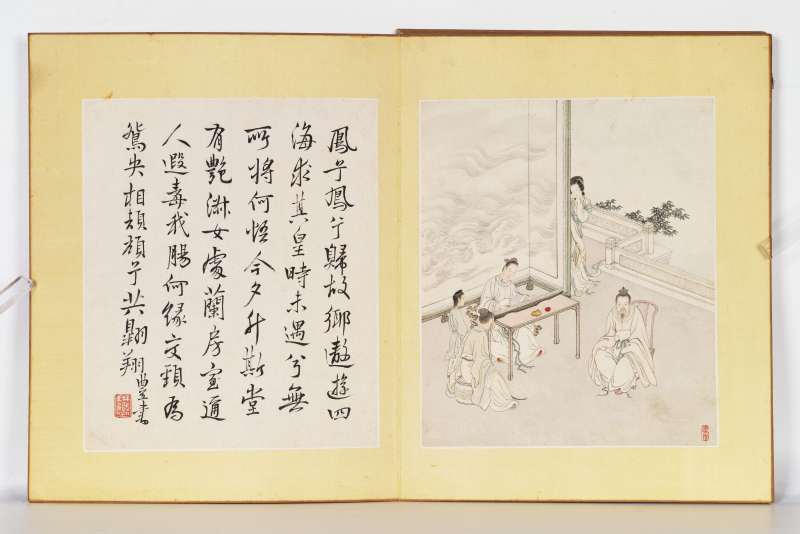 鳳兮鳳兮歸故鄉遨遊四
海求其皇時未遇兮無
所將何悟今夕升斯堂
有艷淑女處蘭房室邇
人遐毒我腸何緣交頸為
鴛央相頡頏兮共翱翔